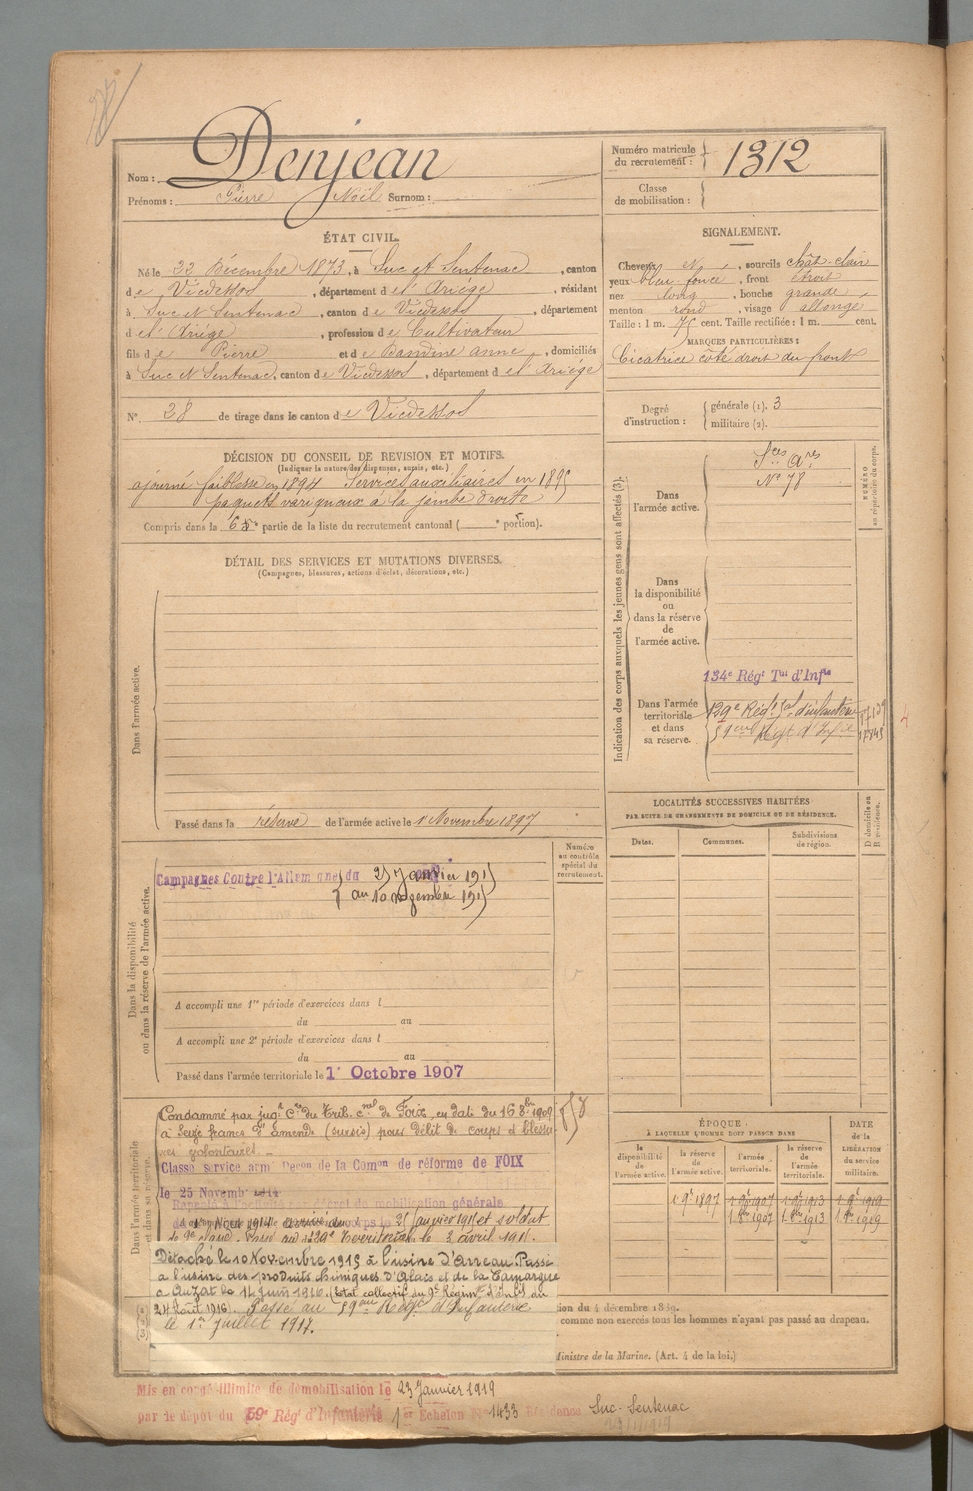 Nom : Denjean
Prénoms : Pierre Noël Surnom :
Numéro matricule du recrutement : 1312
Classe de mobilisation :
ÉTAT CIVIL.
Né le 22 Décembre 1873, à Suc et Sentenac, canton
de Vicdessos, département de l'Ariège, résidant
à Suc et Sentenac, canton de Vicdessos, département
de l'Ariège, profession de Cultivateur
fils de Pierre et de Anne, domiciliés
à Suc et Sentenac, canton de Vicdessos, département de l'Ariège
N° 28 de tirage dans le canton de Vicdessos
SIGNALEMENT.
Cheveux N, sourcils chât-clair
yeux bleu foncé, front étroit
nez long, bouche grande
menton rond, visage allongé
Taille : 1 m. 75 cent. Taille rectifiée : 1 m. cent.
MARQUES PARTICULIÈRES :
Cicatrice côté droit du front
Degré d'instruction : générale (1). 3
militaire (2).
DÉCISION DU CONSEIL DE REVISION ET MOTIFS.
(Indiquer la nature des dispenses, sursis, etc.)
ajourné faiblesse en 1894 Services auxiliaires en 1895
paquets variqueux à la jambe droite
Compris dans la partie de la liste du recrutement cantonal ( portion).
DÉTAIL DES SERVICES ET MUTATIONS DIVERSES.
(Campagnes, blessures, actions d'éclat, décorations, etc.)
Dans l'armée active.
Passé dans la réserve de l'armée active le 1 Novembre 1897
Indication des corps auxquels les jeunes gens sont affectés (3).
NUMÉRO au répertoire du corps.
Dans l'armée active.
Sces Ares
N° 78
Dans la disponibilité ou dans la réserve de l'armée active.
Dans l'armée territoriale et dans sa réserve.
134e Régt Tal d'Infie
129e Régt Tal d'infanterie
59eme Régt d'Infie
LOCALITÉS SUCCESSIVES HABITÉES
PAR SUITE DE CHANGEMENTS DE DOMICILE OU DE RÉSIDENCE.
Dates. Communes. Subdivisions de région.
D domicile ou R résidence.
Dans la disponibilité ou dans la réserve de l'armée active.
Numéro au contrôle spécial du recrutement.
Campagnes Contre l'Allemagne du 25 Janvier 1915
au 10 novembre 1915
A accompli une 1re période d'exercices dans l
du au
A accompli une 2e période d'exercices dans l
du au
Passé dans l'armée territoriale le 1r Octobre 1907
Dans l'armée territoriale et dans sa réserve.
Condamné par jugt Cre du Trib. cvel de Foix en date du 16 8bre 1909
à Seize francs d'amende (sursis) pour délit de coups et blessu-
res volontaires. -
Classé service armé Deron de la Comon de réforme de FOIX
le 25 Novemb 1914
Rappelé à l'activité décret de mobilisation générale
du 1er août 1914 arrivé au corps le 25 janvier 1915 et soldat
de 2e classe. Passé au 129e Territorial le 3 avril 1915.
Détaché le 10 Novembre 1915 à l'usine d'Arreau. Passé
à l'usine des produits chimiques d'Alais et de la Camargue
à Auzat le 14 juin 1916. (Etat collectif du 9e Régime d'Infie du
24 Août 1916). Passé au 59eme Régt d'Infanterie
le 1er juillet 1917.
ÉPOQUE
À LAQUELLE L'HOMME DOIT PASSER DANS
la disponibilité de l'armée active. la réserve de l'armée active. l'armée territoriale. la réserve de l'armée territoriale.
DATE de la LIBÉRATION du service militaire.
1 9e 1897 1 9e 1907 1 9e 1913 1 9e 1919
1 8bre 1907 1 8bre 1913 1 8bre 1919
ion du 4 décembre 1889.
comme non exercés tous les hommes n'ayant pas passé au drapeau.
Ministre de la Marine. (Art. 4 de la loi.)
Mis en congé illimité de démobilisation le 23 Janvier 1919
par le dépôt du 59e Régt d'Infanterie 1er Echelon N° 1433 Résidence Suc-Sentenac